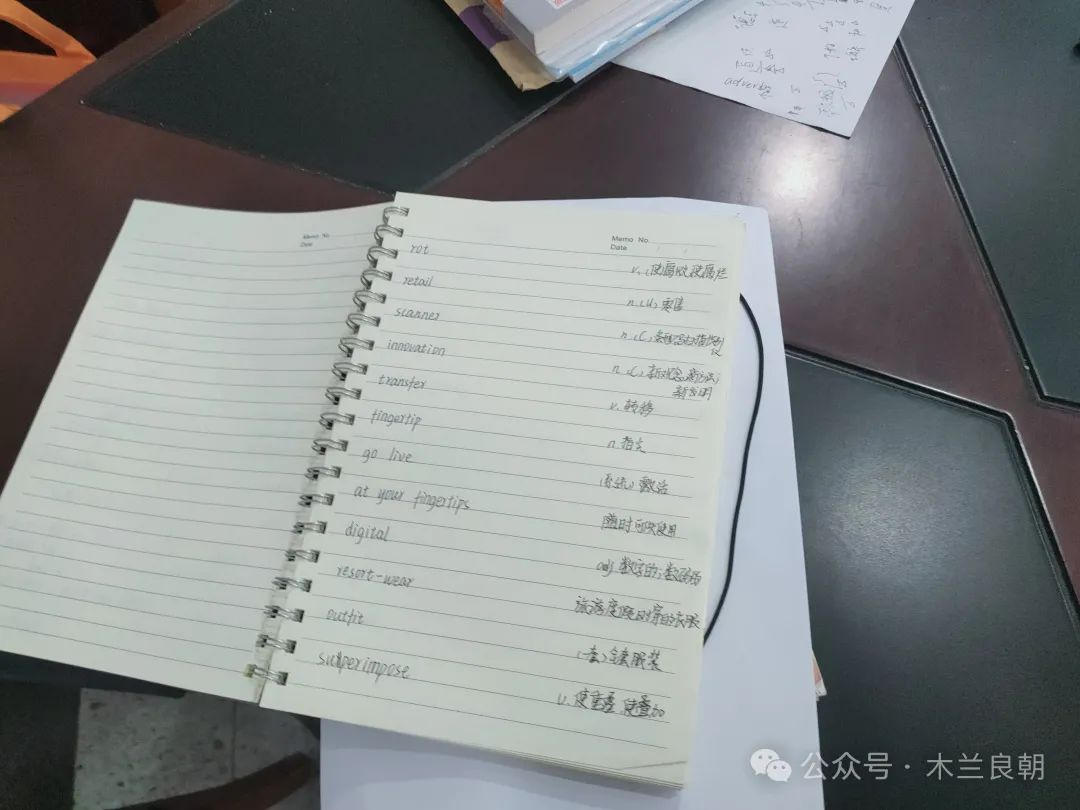 Memo No
Date
Memo No
Date
rot v. (使)腐败,使腐烂
retail n. (U) 零售
scanner n. (C)
innovation n. (C) 新观念;新方法;
新发明
transfer v. 转移
fingertip n. 指尖
go live (系统) 激活
at your fingertips 随时可供使用
digital adj 数字的;数码的
resort-wear 旅游度假时穿的衣服
outfit (一套)全套服装
superimpose v. 使重叠 使叠加
adverbs
公众号·木兰良朝